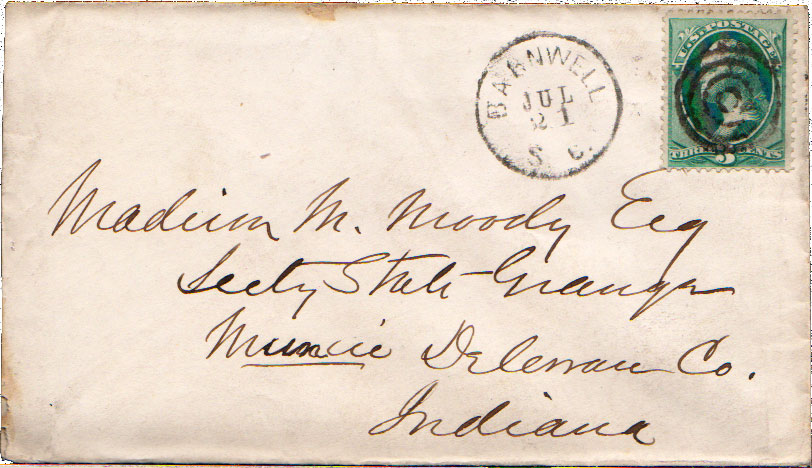 U.S. POSTAGE
THREE CENTS
3
BARNWELL
JUL
21
S. C.
Madison M. Moody Esq
Secty State Granger
Muncie Delewau Co.
Indiana